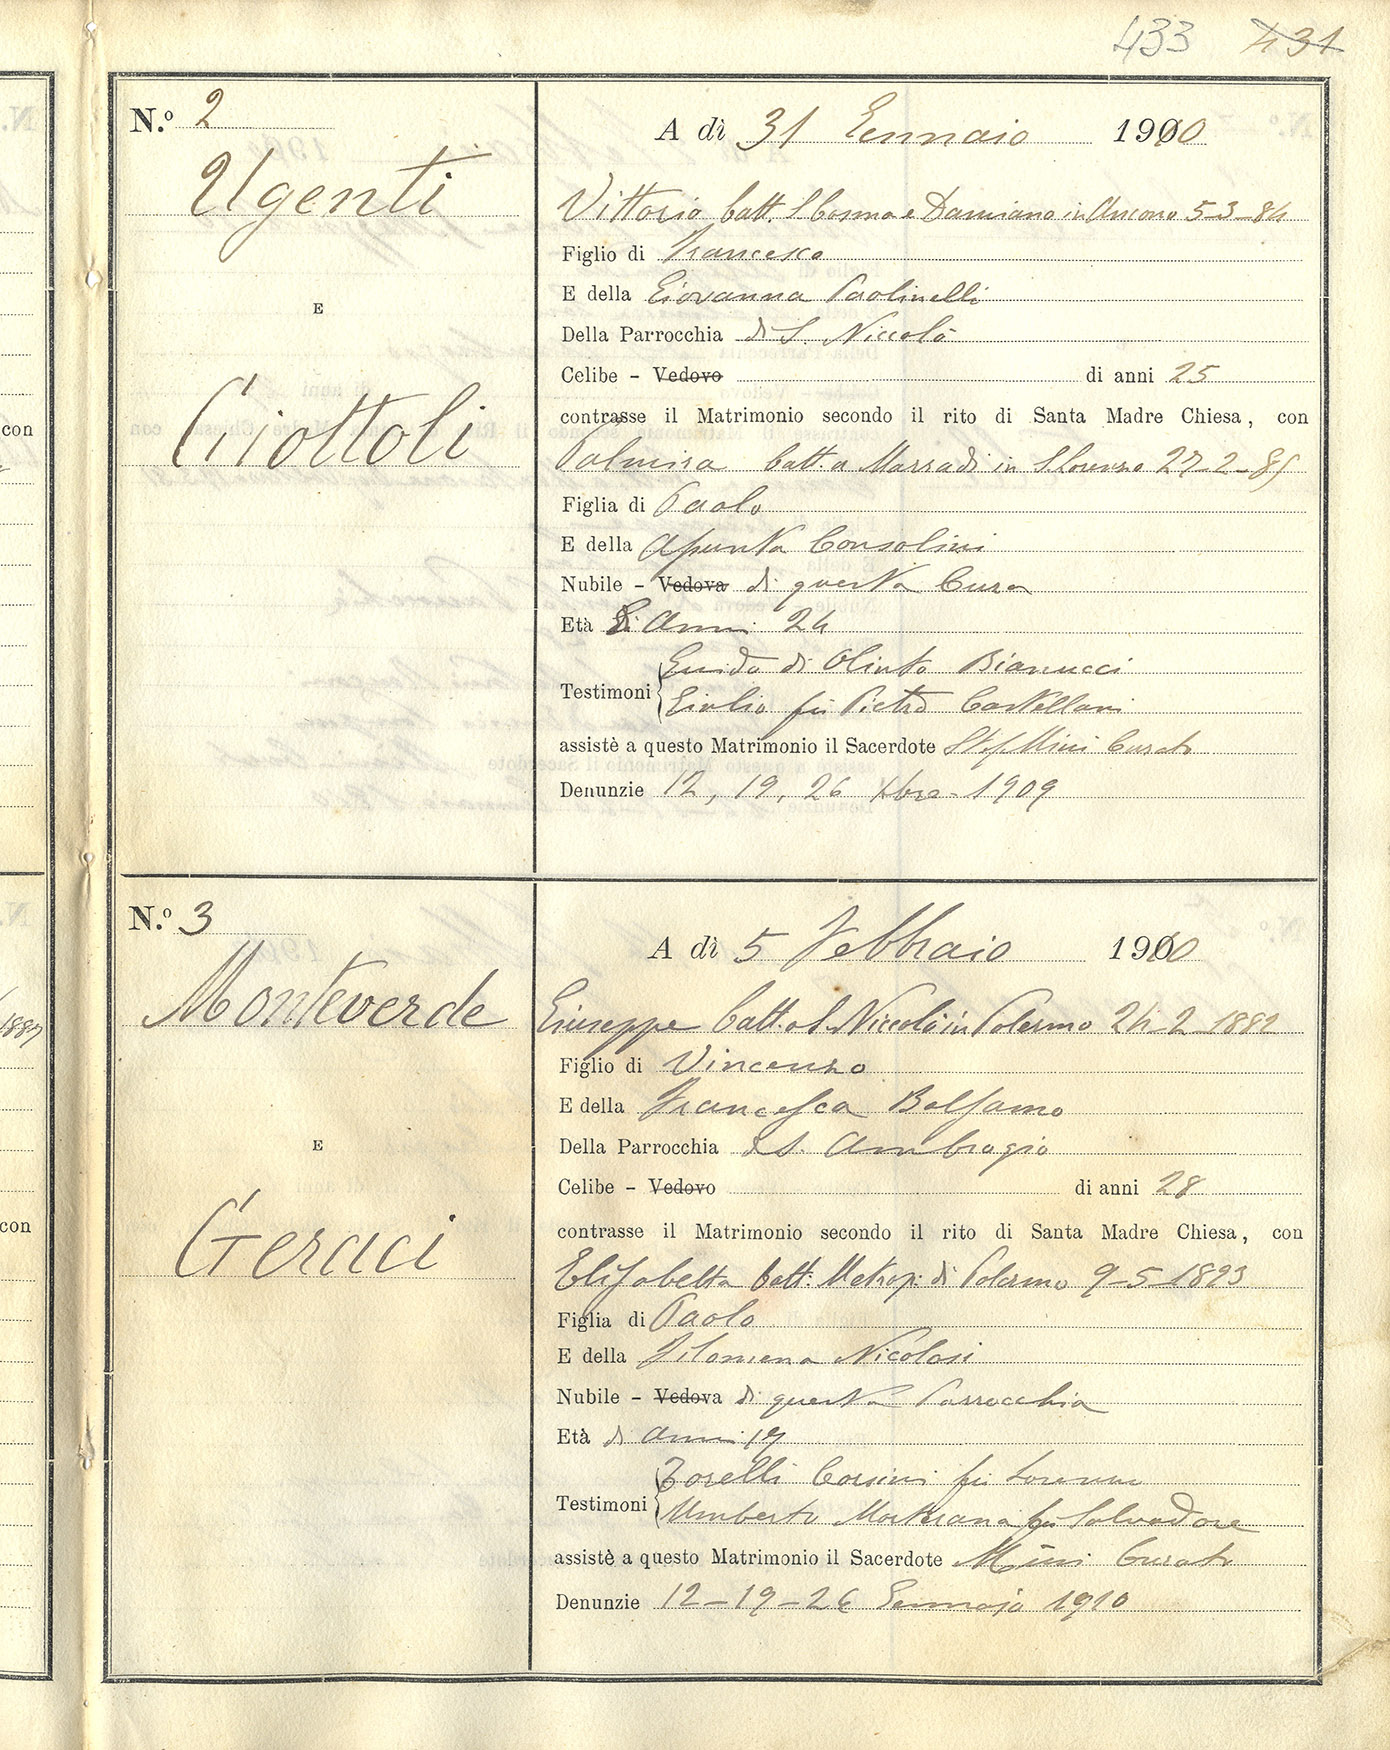 433 431
N.º 2
A dì 31 Gennaio 1910
Ugenti
Vittorio batt. S Cosma e Damiano in Ancona 5-3-84
Figlio di Francesco
E della Giovanna Paolinelli
E
Della Parrocchia di S. Niccolò
Celibe – Vedovo di anni 25
contrasse il Matrimonio secondo il rito di Santa Madre Chiesa, con
Ciottoli
Palmira batt. a Marradi in S Lorenzo 27-2-85
Figlia di Paolo
E della Assunta Consolini
Nubile – Vedova di questa Cura
Età di Anni 24
Testimoni Guido di Olinto Bianucci
Giulio fu Pietro Castellani
assistè a questo Matrimonio il Sacerdote Mini Curato
Denunzie 12, 19, 26 Xbre 1909
N.º 3
A dì 5 Febbraio 1910
Monteverde
Giuseppe batt. a S. Niccolò in Palermo 24-2 1882
Figlio di Vincenzo
E della Francesca Balsamo
E
Della Parrocchia di S. Ambrogio
Celibe – Vedovo di anni 28
contrasse il Matrimonio secondo il rito di Santa Madre Chiesa, con
Geraci
Elisabetta batt. Metrop: di Palermo 9-5-1893
Figlia di Paolo
E della Filomena Nicolosi
Nubile – Vedova di questa Parrocchia
Età di anni 17
Testimoni Torelli Corsini fu Lorenzo
Umberto fu Salvadore
assistè a questo Matrimonio il Sacerdote Mini Curato
Denunzie 12-19-26 Gennaio 1910
con
1887
con